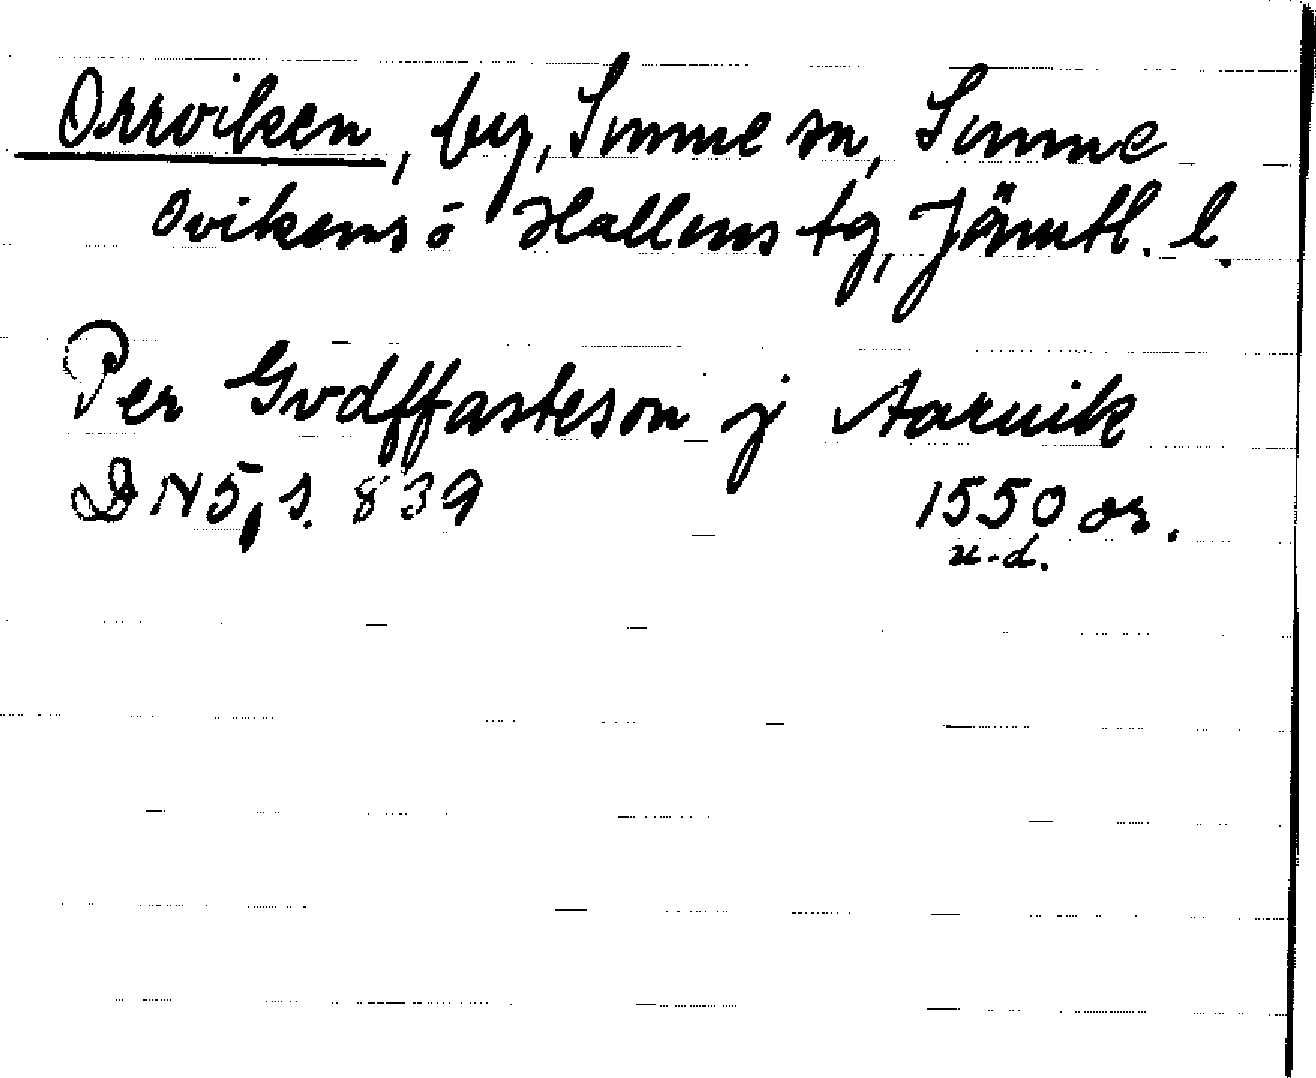 Orrviken, by, Sunne sn, Sunne
Ovikens o Hallens tg, Jämtl. l.
Per Gvdffasteson j Aaruik
DN 5, s. 839 1550 or.
u.d.